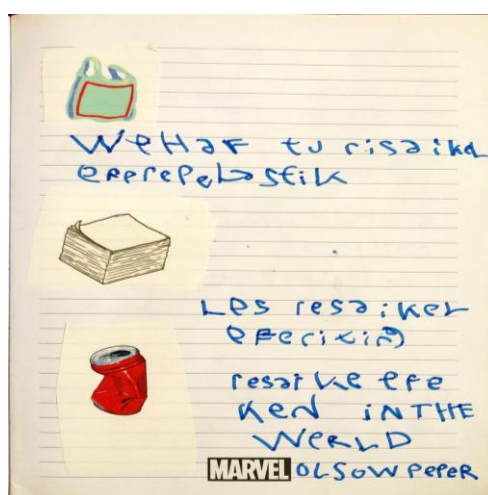 WeHaF tu risaikel
eferepelastik
Les resaikel
eferixing
resaike efe
Ken iNTHE
WeRLD
MARVEL OLSOW PePER